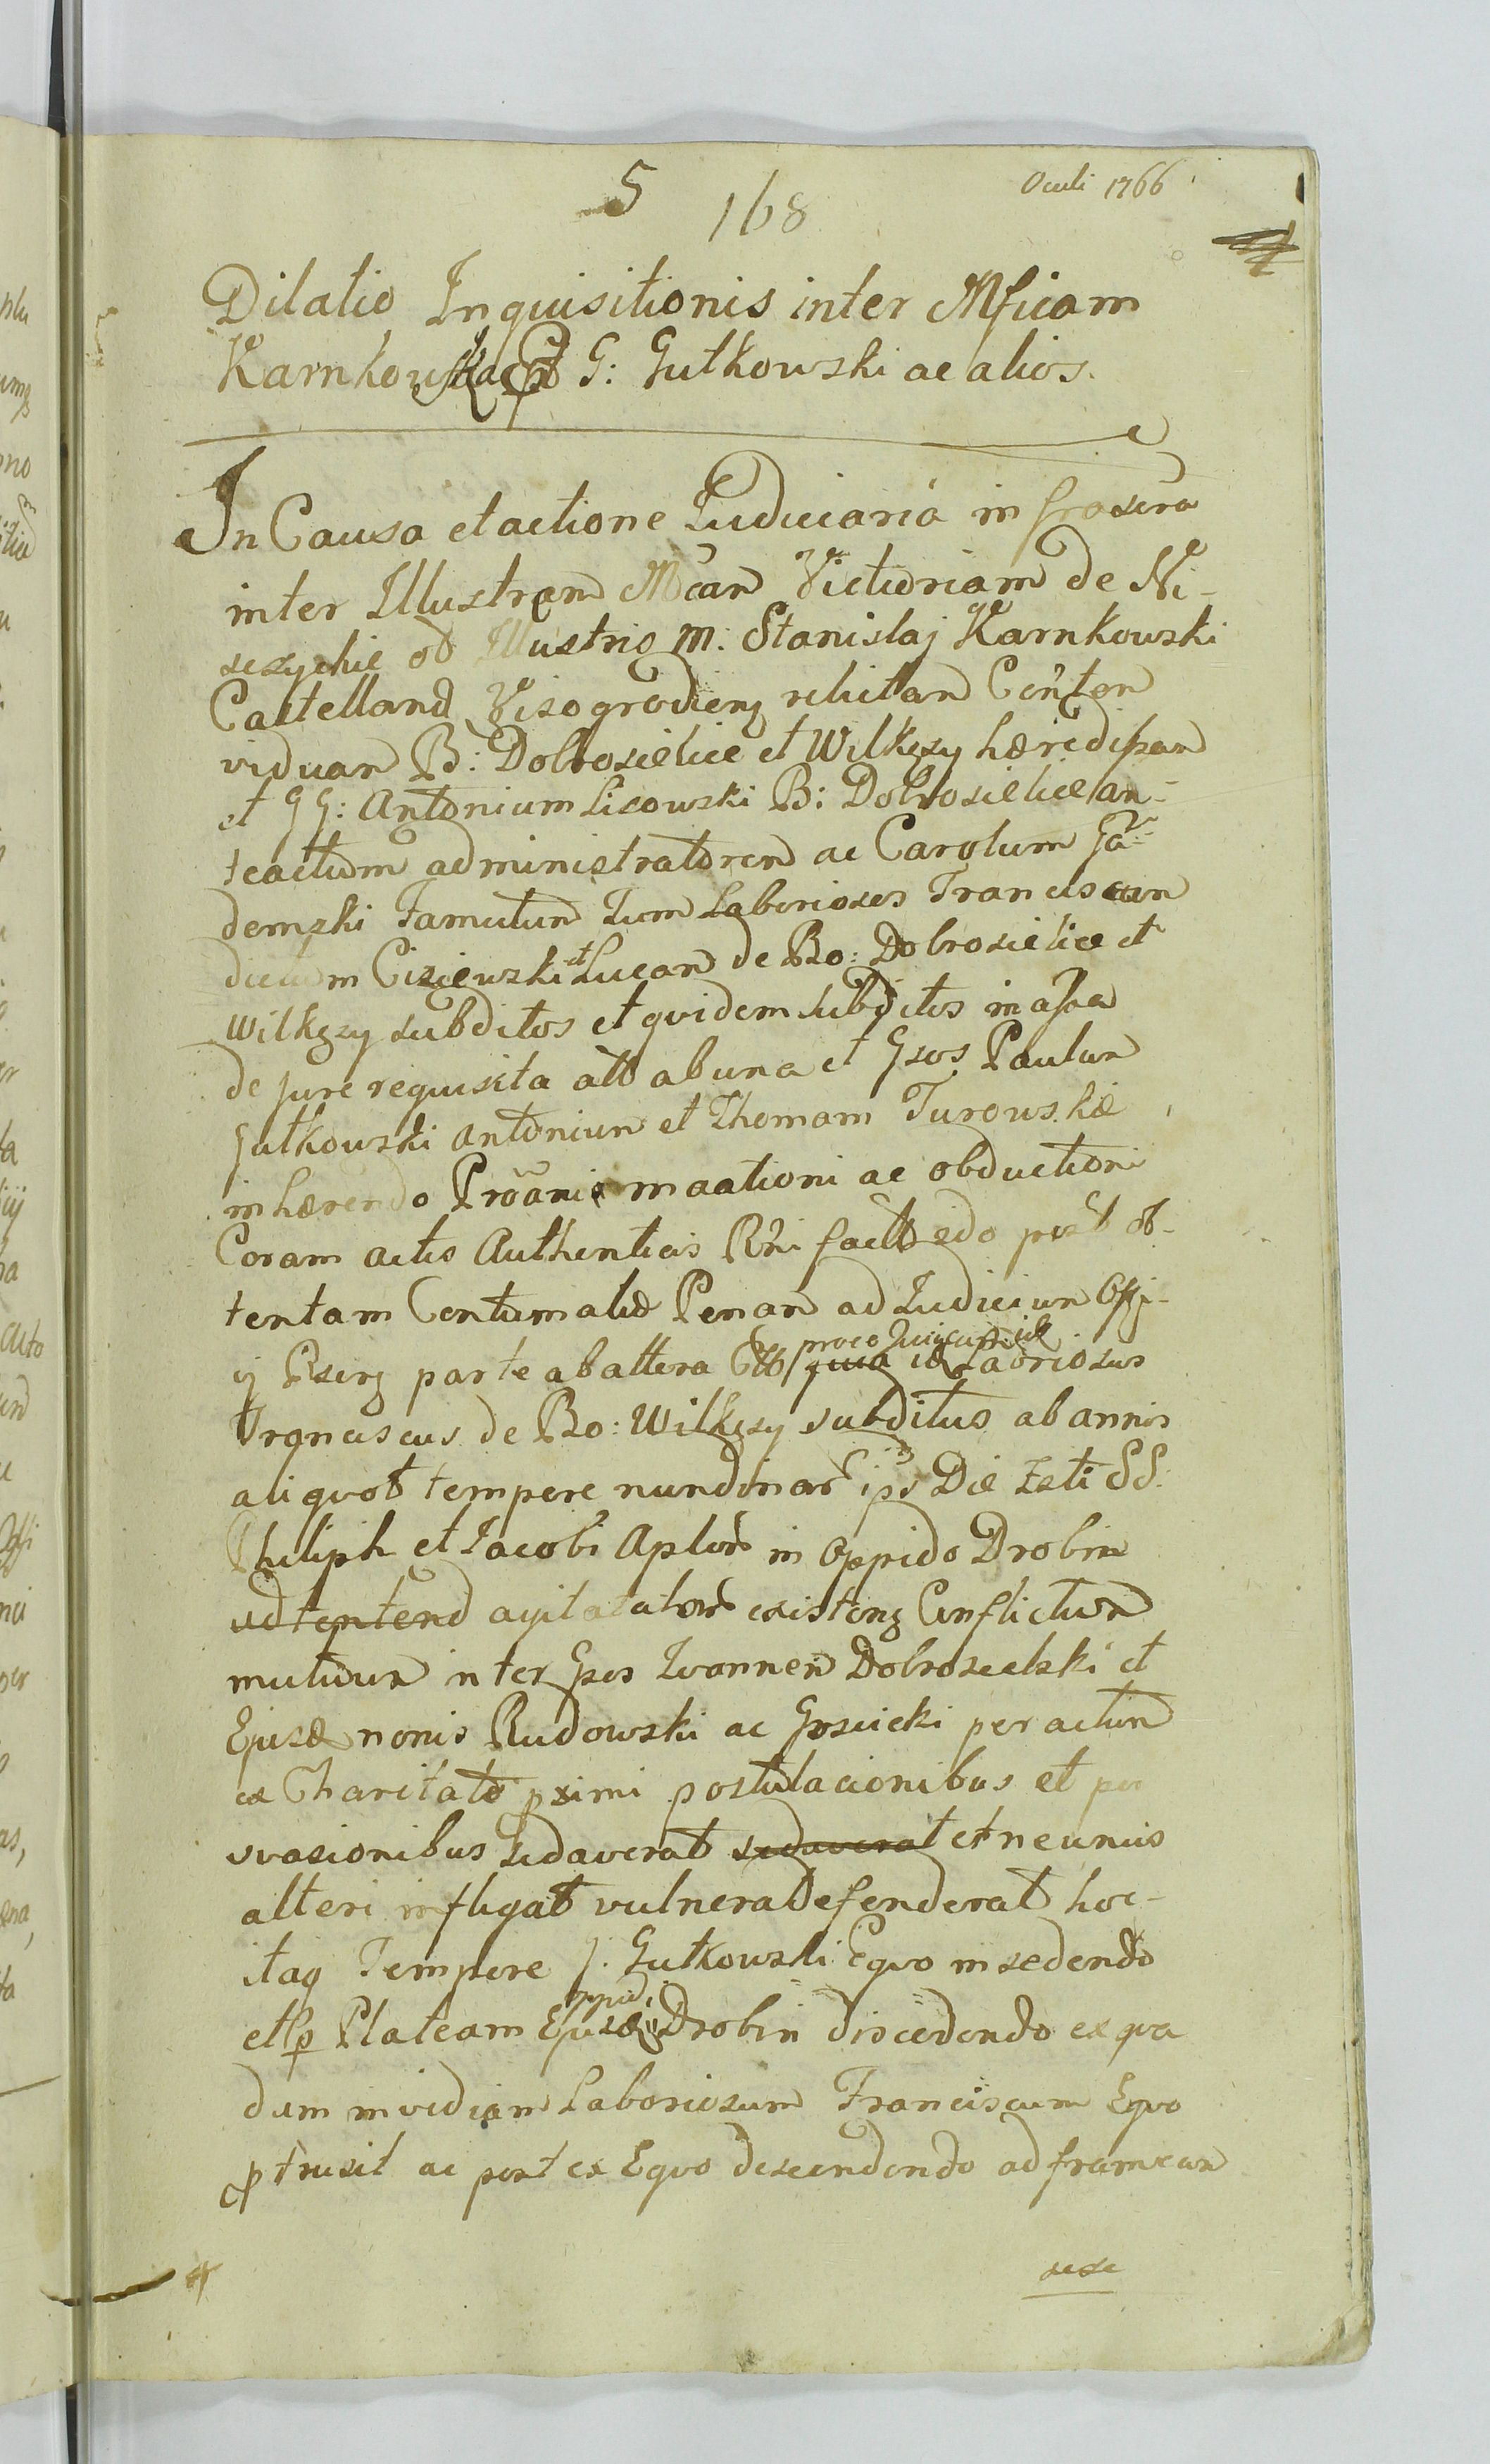 5 168 Oculi 1766
Dilatio Inquisitionis inter Mficam
Karnkowska et G: Gutkowski ac alios.
In Causa et actione Judiciaria infrascra
inter Illustrem Mcam Victoriam de Ni-
szyckie ol Illustris M: Stanislaj Karnkowski
Castellan Visogrodien relictam Conten
viduam B: Dobrosielice et Wilkęsy hæredissan
et GG: Antonium Lisowski B: Dobrosielice an-
teactum administratorem ac Carolum Ga-
demski Famulum Tum Laboriosos Franciscum
dictum Cisiewski et Lucam de Bo: Dobrosielice et
Wilkęsy subditos et quidem subditos in assa
de jure requisita att ab una et Gsos Paulum
Gutkowski Antonium et Thomam Turowskie
inhærendo ac obductioni
Coram actis Authenticis facto
tentam Contumatiæ Penam ad Judicium Offi-
ij parte ab altera quia Laboriosus
Franciscus de Bo: Wilkęsy subditus ab annis
aliquot tempore nundinar ipso Die Festi SS.
Philipi et Jacobi Aplor in Oppido Drobin
existens Conflictum
mutuum inter Gsos Joannem Dobrosielski et
Ejusd nonis Rudowski ac Gosicki peractum
ex Charitate pximi postulacionibus et per
svasionibus sedaverat sedaverat et ne unus
alteri infligat vulnera defenderat hoc-
itaq Tempore G. Gutkowski Equo insedendo
et p Plateam Ejusd oppidi Drobin discedendo ex qva
dam invidiam Laboriosum Franciscum Equo
ptrusit ac post ex Equo descendendo ad frameam
sese